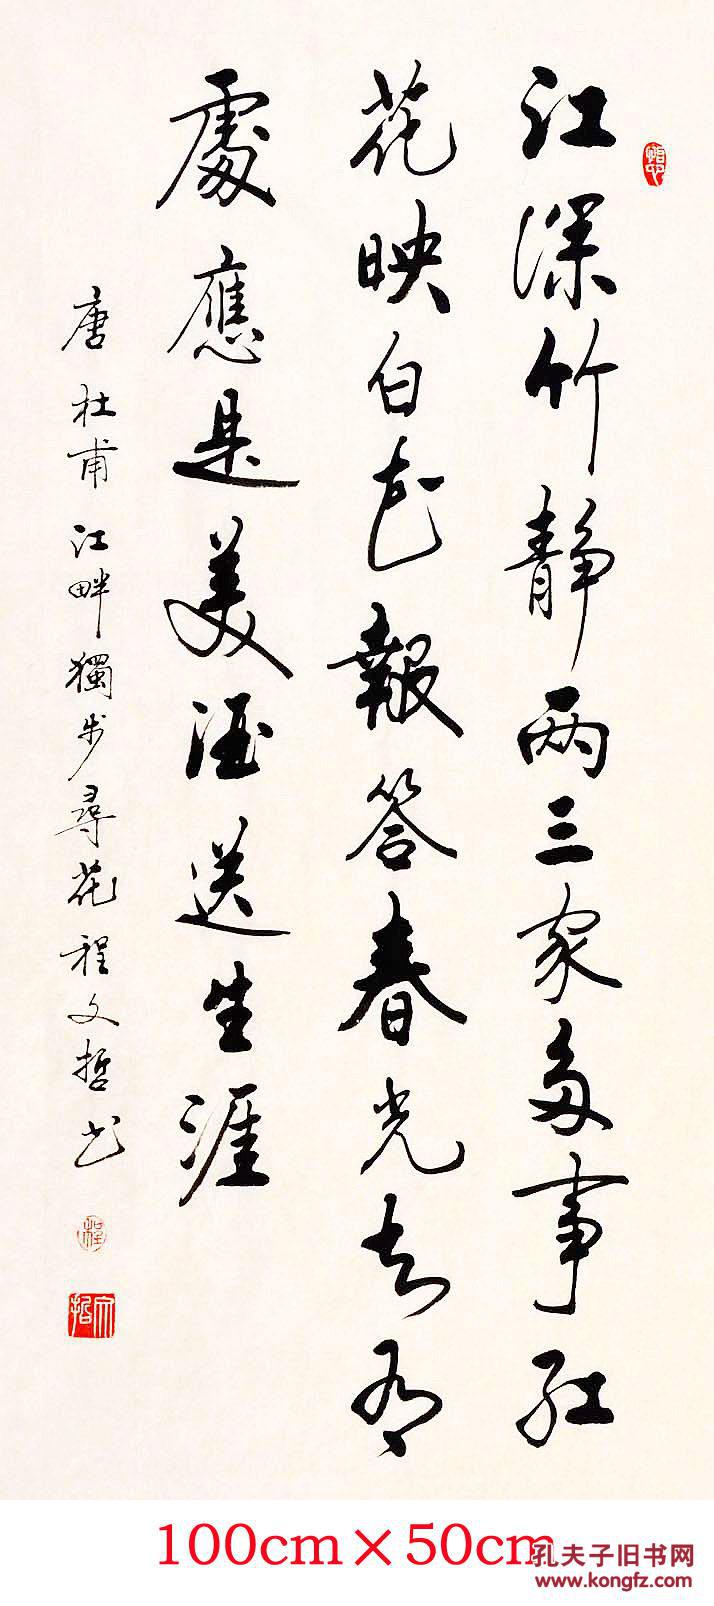 江深竹静两三家多事红
花映白花報答春光知有
處應是美酒送生涯
唐杜甫江畔獨步尋花程文哲书
程
文哲
100cm×50cm
孔夫子旧书网
www.kongfz.com